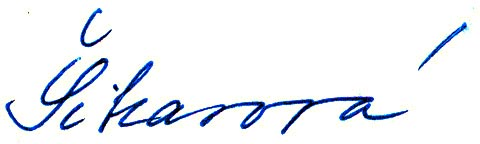 Šikarová